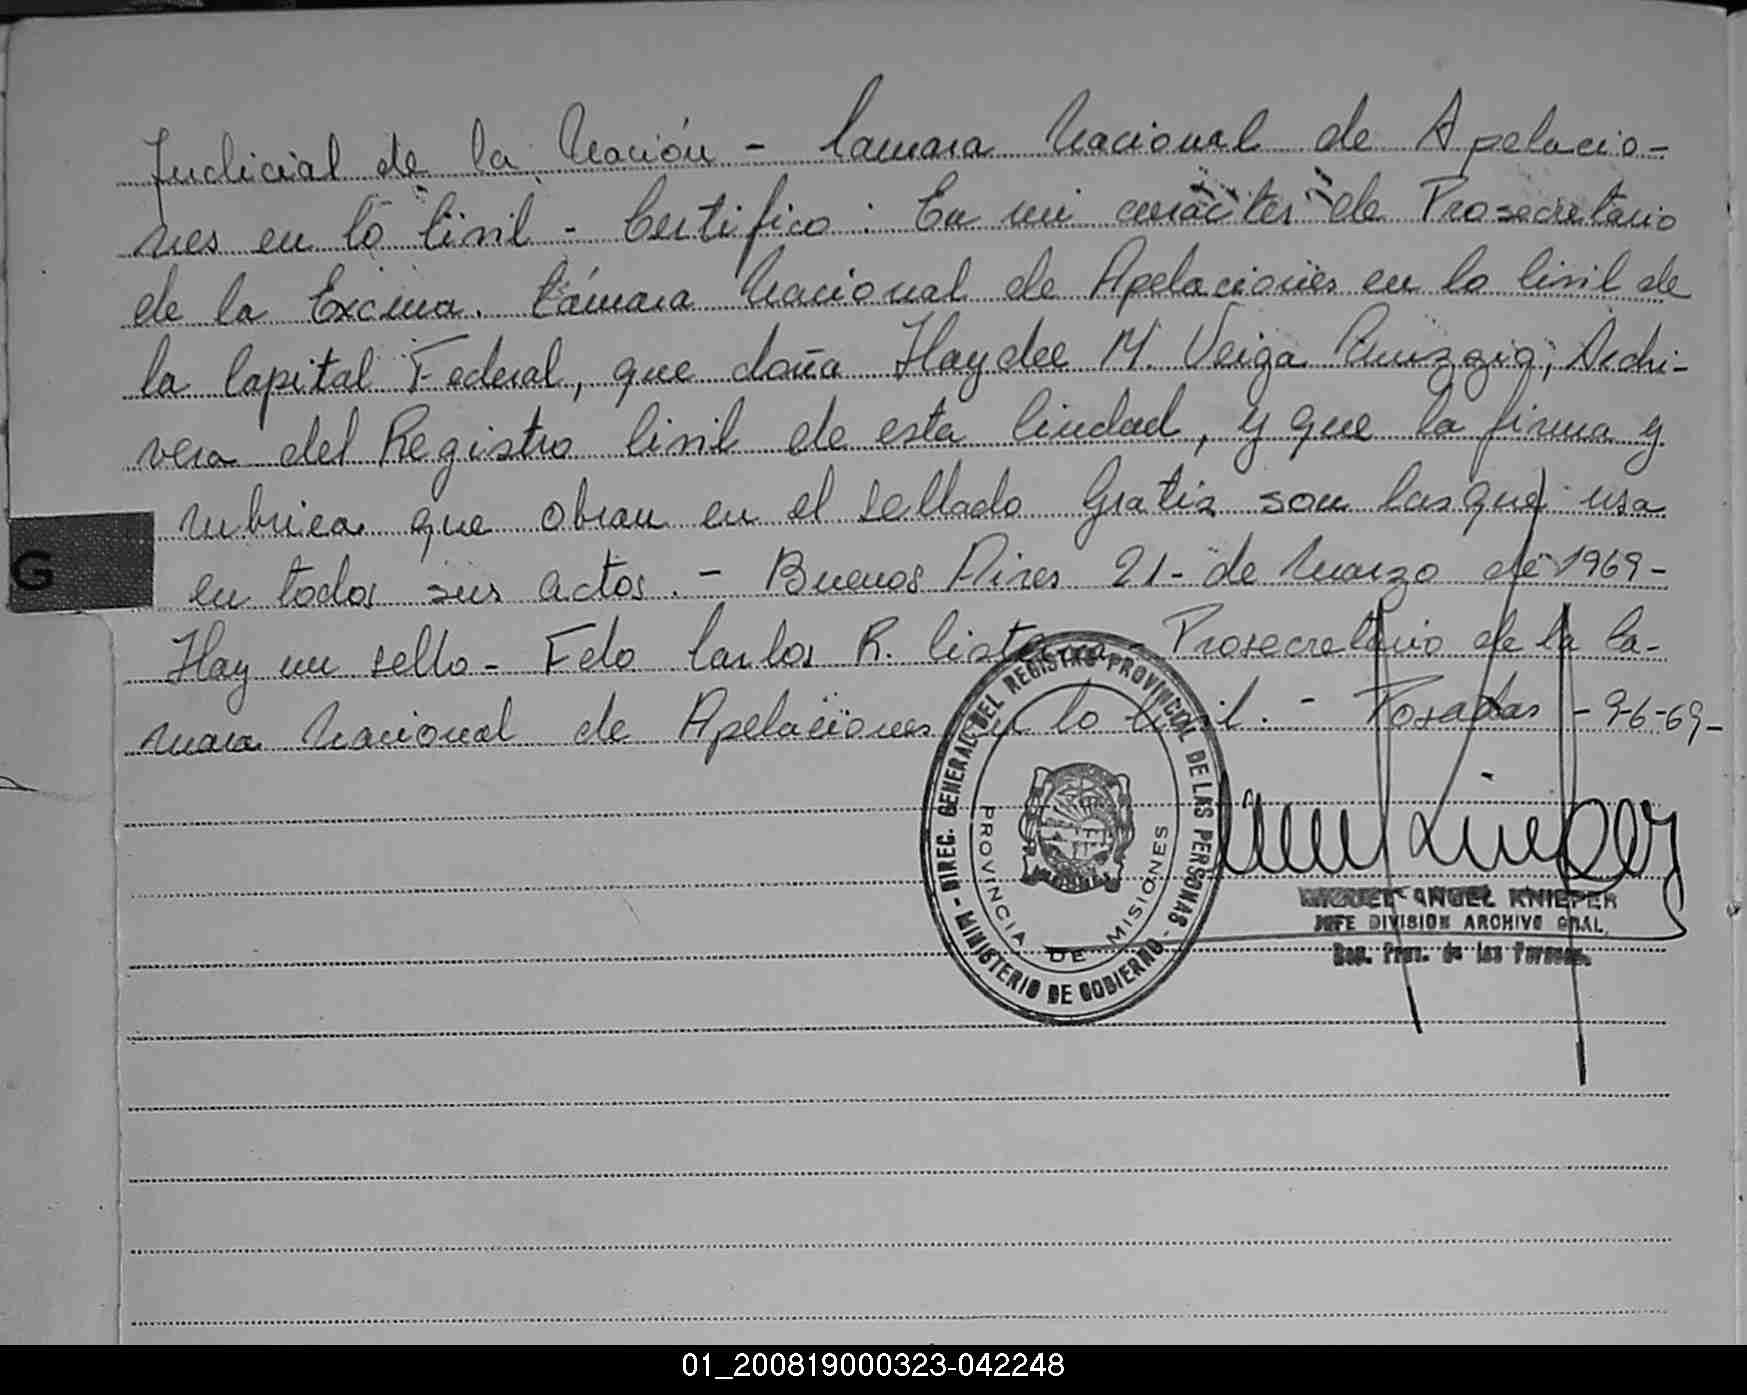 Judicial de la Nación - Camara Nacional de Apelacio-
nes en lo Civil - Certifico: En mi carácter de Prosecretario
de la Excma. Cámara Nacional de Apelaciones en lo Civil de
la Capital Federal, que doña Haydee M. Veiga Archi-
vera del Registro Civil de esta Ciudad, y que la firma y
rubrica que obran en el sellado Gratis son las que usa
G
en todos sus actos. - Buenos Aires 21 - de Marzo de 1969 -
Hay un sello - Fdo Carlos R. - Prosecretario de la Ca-
mara Nacional de Apelaciones en lo Civil. - Posadas - 9-6-69 -
DIREC. GENERAL DEL REGISTRO PROVINCIAL DE LAS PERSONAS - MINISTERIO DE GOBIERNO -
PROVINCIA DE MISIONES
MIGUEL ANGEL KNIEPER
JEFE DIVISION ARCHIVO GRAL.
Reg. Prov. de las Personas.
01_200819000323-042248